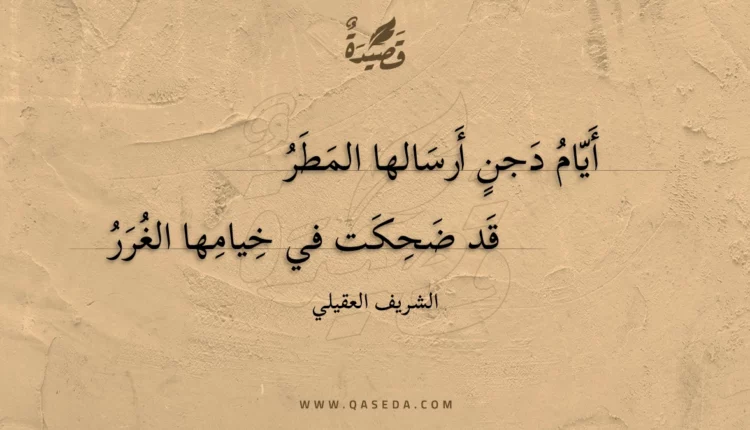 قَصِيدَةٌ
أَيّامُ دَجنٍ أَرسَالها المَطَرُ
قَد ضَحِكَت في خِيامِها الغُرَرُ
الشريف العقيلي
WWW.QASEDA.COM